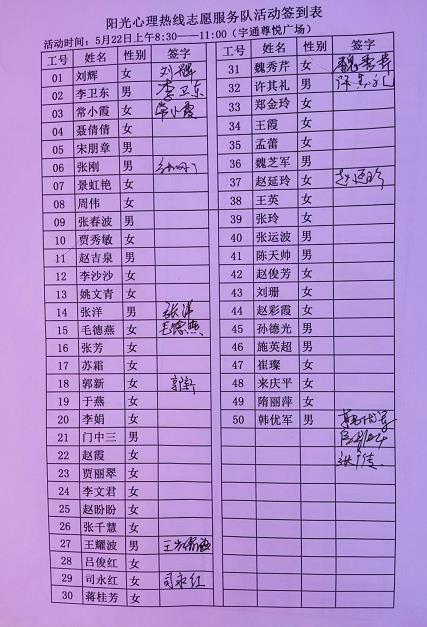 阳光心理热线志愿服务队活动签到表
活动时间：5月22日上午8:30——11:00（宇通尊悦广场）
工号 姓名 性别 签字
01 刘辉 女 刘辉
02 李卫东 男 李卫东
03 常小霞 女 常小霞
04 聂倩倩 女
05 宋朋章 男
06 张刚 男
07 景虹艳 女
08 周伟 女
09 张春波 男
10 贾秀敏 女
11 赵吉泉 男
12 李沙沙 女
13 姚文青 女
14 张洋 男 张洋
15 毛德燕 女 毛德燕
16 张芳 女
17 苏霜 女
18 郭新 女 郭新
19 于燕 女
20 李娟 女
21 门中三 男
22 赵霞 女
23 贾丽翠 女
24 李文君 女
25 赵盼盼 女
26 张千慧 女
27 王耀波 男 王耀波
28 吕俊红 女
29 司永红 女 司永红
30 蒋桂芳 女
工号 姓名 性别 签字
31 魏秀芹 女 魏秀芹
32 许其礼 男
33 郑金玲 女
34 王霞 女
35 孟蕾 女
36 魏芝军 男
37 赵延玲 女 赵延玲
38 王英 女
39 张玲 女
40 张运波 男
41 陈天帅 男
42 赵俊芳 女
43 刘珊 女
44 赵彩霞 女
45 孙德光 男
46 施英超 男
47 崔璨 女
48 来庆平 女
49 隋丽萍 女
50 韩优军 男 韩优军